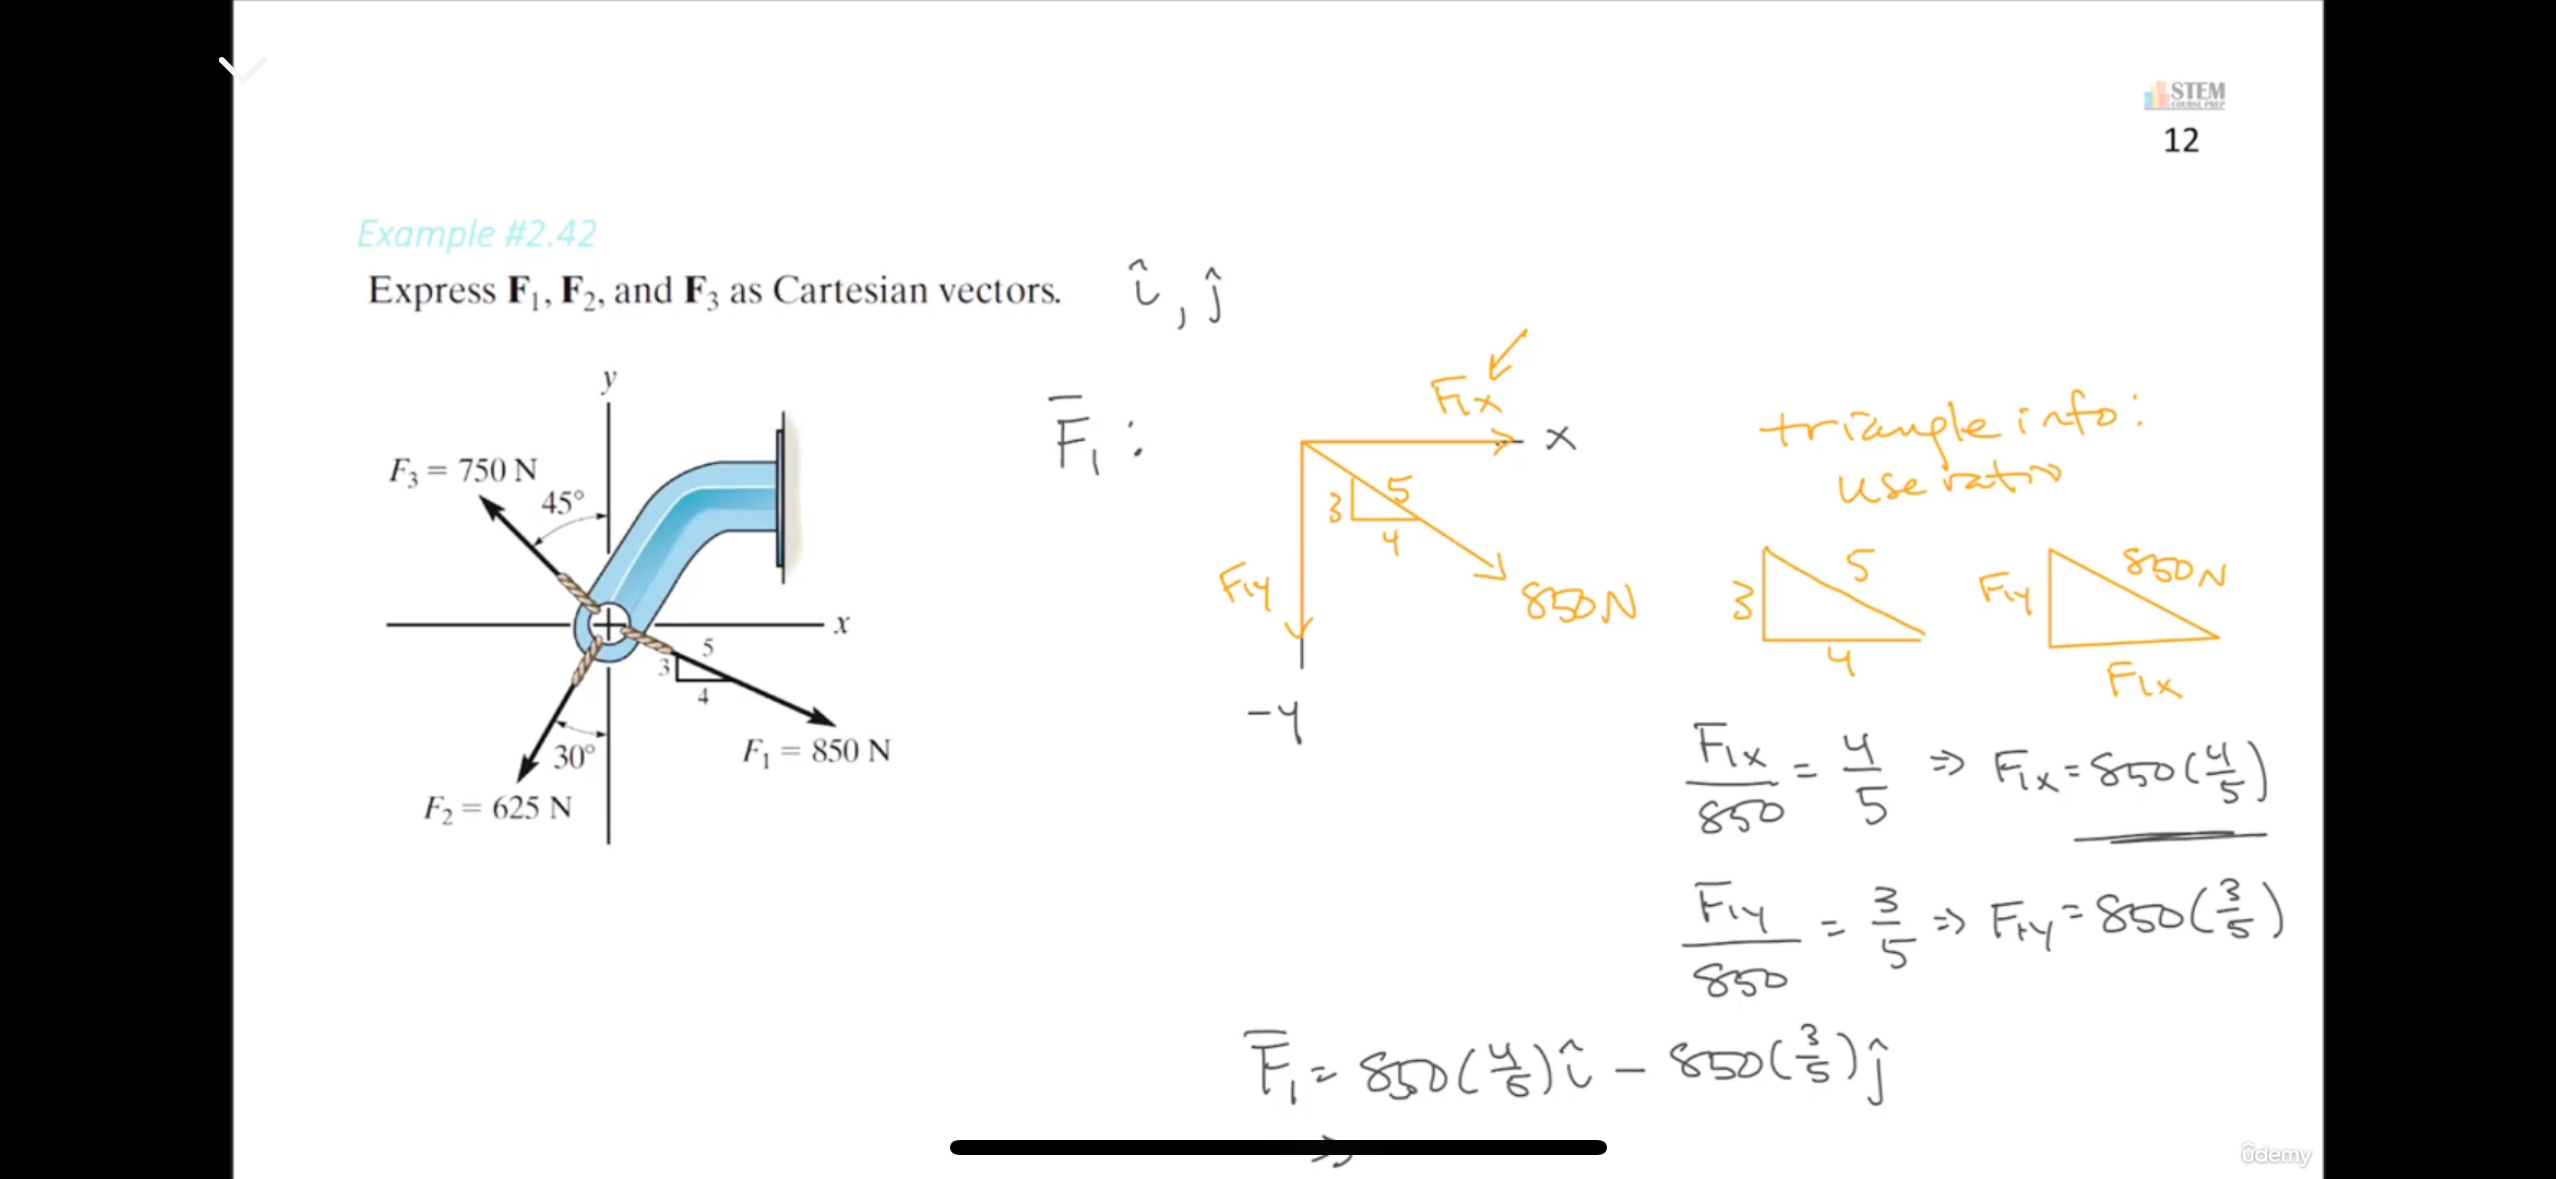 STEM
COURSE PREP
12
Example #2.42
Express F₁, F₂, and F₃ as Cartesian vectors.
î, ĵ
y
F₃ = 750 N
45°
x
5
3
4
30°
F₁ = 850 N
F₂ = 625 N
F̅₁ :
F₁x
x
5
3
4
F₁y
850N
-y
triangle info:
use ratio
5
3
4
850N
F₁y
F₁x
F₁x/850 = 4/5 ⇒ F₁x = 850(4/5)
F₁y/850 = 3/5 ⇒ F₁y = 850(3/5)
F̅₁ = 850(4/5)î - 850(3/5)ĵ
ûdemy